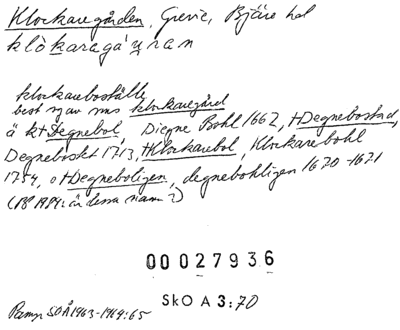 Klockaregården, Grevie, Bjäre hd
klòkaragáɥran
klockareboställe
best sg av sms klockaregård
ä k+Degnebol, Diegne Bohl 1662, +Degnebostad,
Degnebostet 1713, +Klockarebol, Klockarebohl
1754, o +Degneboligen, degnebohligen 1670-1671
(PS 1484: är dessa namn?)
00027936
SkO A 3:70
Pamp SOÅ 1963-1964:65